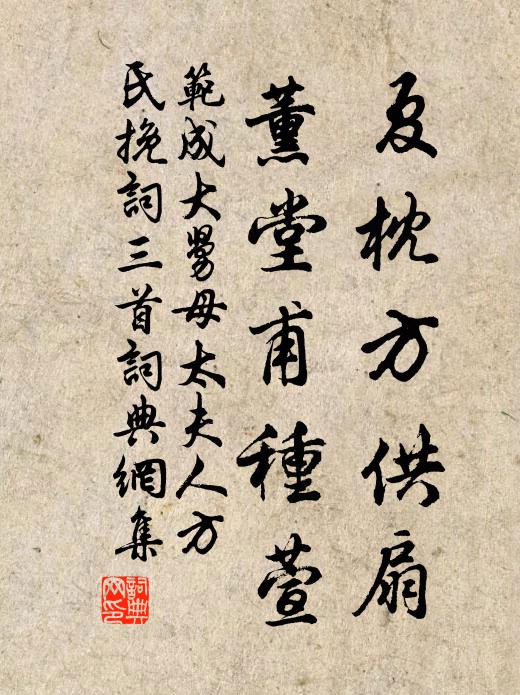 夏枕方供扇
薰堂甫種萱
範成大舅母太夫人方
氏挽詞三首詞典網集
詞典
网印